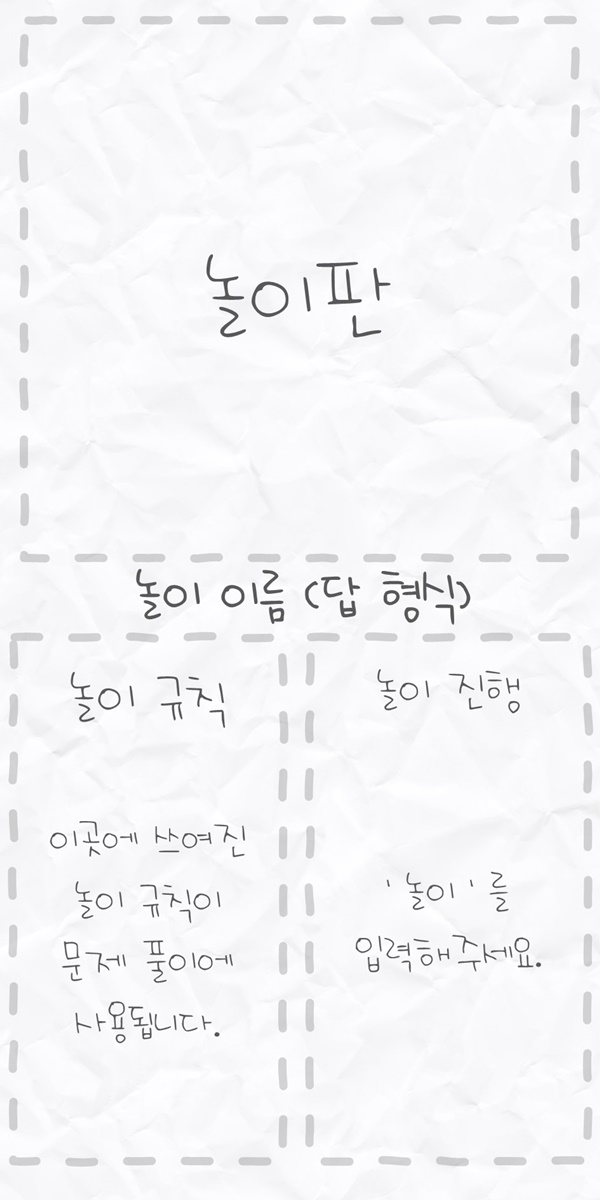 놀이판
놀이 이름 (답 형식)
놀이 규칙
이곳에 쓰여진
놀이 규칙이
문제 풀이에
사용됩니다.
놀이 진행
'놀이'를
입력해주세요.